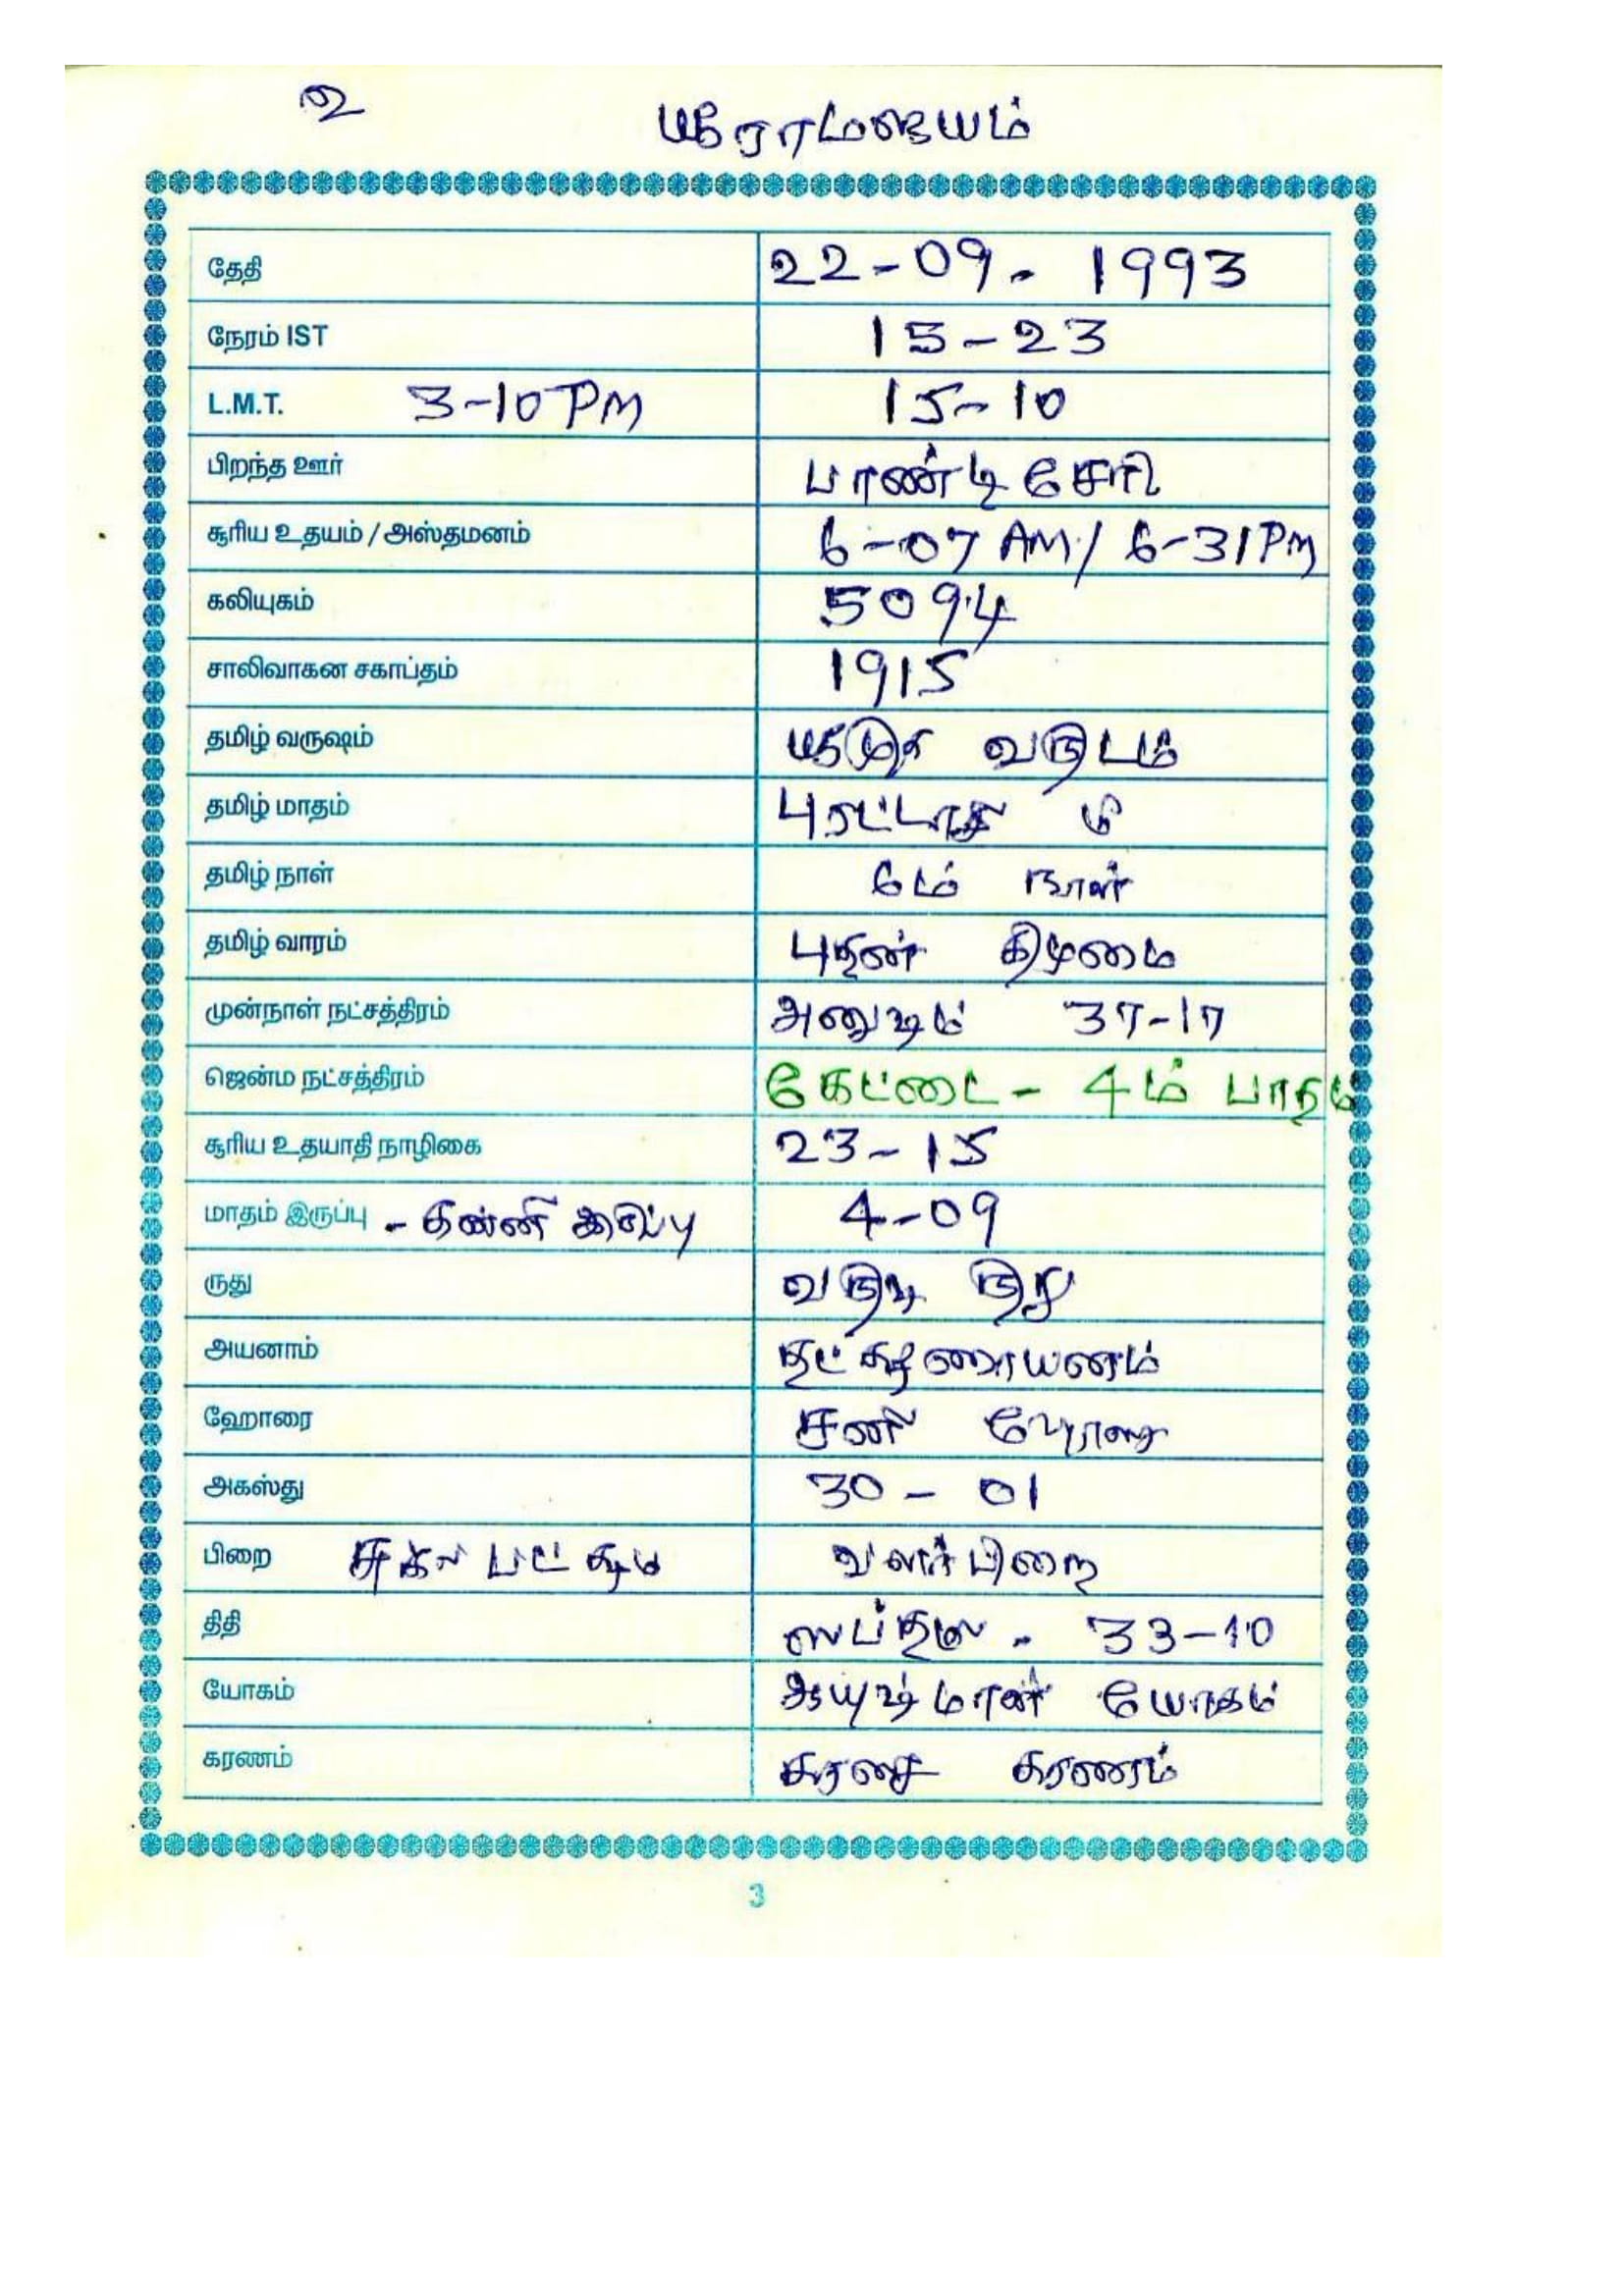 உ
ஸ்ரீராமஜெயம்
தேதி 22-09-1993
நேரம் IST 15-23
L.M.T. 3-10 PM 15-10
பிறந்த ஊர் பாண்டிசேரி
சூரிய உதயம் / அஸ்தமனம் 6-07 AM / 6-31 PM
கலியுகம் 5094
சாலிவாகன சகாப்தம் 1915
தமிழ் வருஷம் ஸ்ரீமுக வருடம்
தமிழ் மாதம் புரட்டாசி மீ
தமிழ் நாள் 6ம் நாள்
தமிழ் வாரம் புதன் கிழமை
முன்நாள் நட்சத்திரம் அனுஷம் 37-17
ஜென்ம நட்சத்திரம் கேட்டை - 4ம் பாதம்
சூரிய உதயாதி நாழிகை 23-15
மாதம் இருப்பு - கன்னி இருப்பு 4-09
ருது வருஷ ருது
அயனாம் தட்சிணாயனம்
ஹோரை சனி ஹோரை
அகஸ்து 30-01
பிறை சுக்ல பட்சம் வளர்பிறை
திதி ஸப்தமி - 33-10
யோகம் ஆயுஷ்மான் யோகம்
கரணம் கரசை கரணம்
3